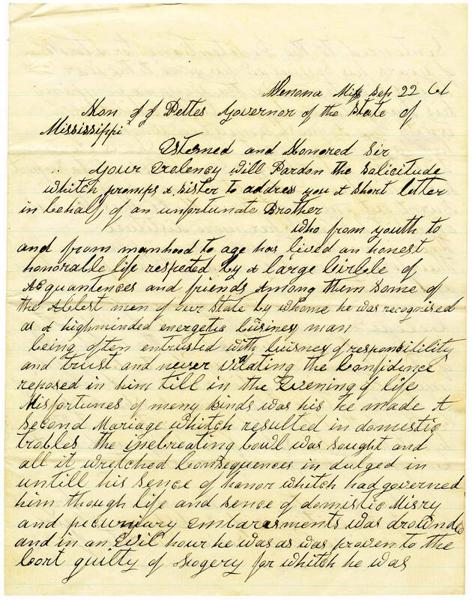 Menona Miss Sep 22 61
Hon J J Pettes Governor of the State of
Mississippi
Estemed and Honored Sir
your Exelency Will Pardon The Solicitude
whitch prompts A sister to address you A short letter
in behalf of an unfortunate Brother
who from youth to
and from manhood to age has lived an honest
honorable life respeted by A Large Cirkele of
Acquantences and friends Among them some of
the Ablest men of our State by whome he was recognised
as A highminded energetic busines man
being often entrusted with buisnes of responsibility
and trust and never vilating the Confidence
reposed in him till in the Evening of life
Misfortunes of meny kinds was his he made A
second Mariage whitch resulted in domestic
trobles the inebreating bowl was sought and
all it wretched Consequences in dulged in
untill his sence of honor whitch had governed
him though life and sence of domistic Misry
and pecurnary embarasments was drounded
and in an Evil hour he was as was proven to the
Cort guilty of Forgery for whitch he was